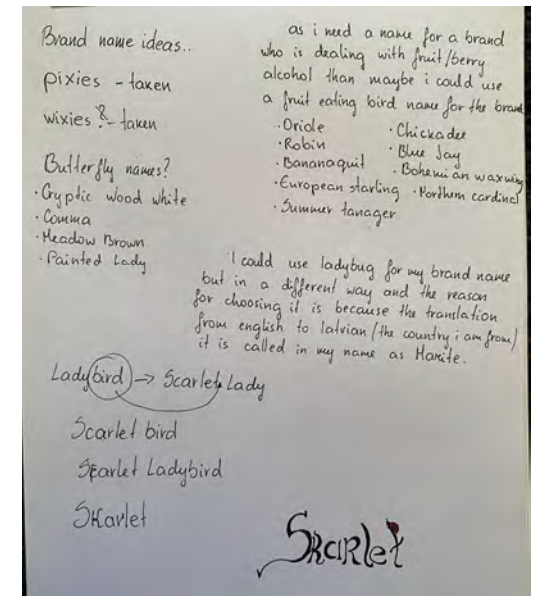 Brand name ideas..
pixies - taken
wixies - taken
Butterfly names?
· Cryptic wood white
· Comma
· Meadow Brown
· Painted Lady
as i need a name for a brand
who is dealing with fruit/berry
alcohol than maybe i could use
a fruit eating bird name for the brand
· Oriole
· Robin
· Bananaquit
· European starling
· Summer tanager
· Chickadee
· Blue Jay
· Bohemian waxwing
· Northern cardinal
I could use ladybug for my brand name
but in a different way and the reason
for choosing it is because the translation
from english to latvian (the country i am from)
it is called in my name as Marite.
Ladybird -> Scarlet Lady
Scarlet bird
Scarlet Ladybird
Skarlet
Skarlet